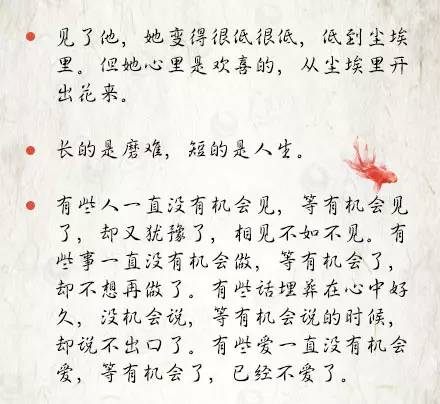 见了他，她变得很低很低，低到尘埃
里。但她心里是欢喜的，从尘埃里开
出花来。
长的是磨难，短的是人生。
有些人一直没有机会见，等有机会见
了，却又犹豫了，相见不如不见。有
些事一直没有机会做，等有机会了，
却不想再做了。有些话埋葬在心中好
久，没机会说，等有机会说的时候，
却说不出口了。有些爱一直没有机会
爱，等有机会了，已经不爱了。